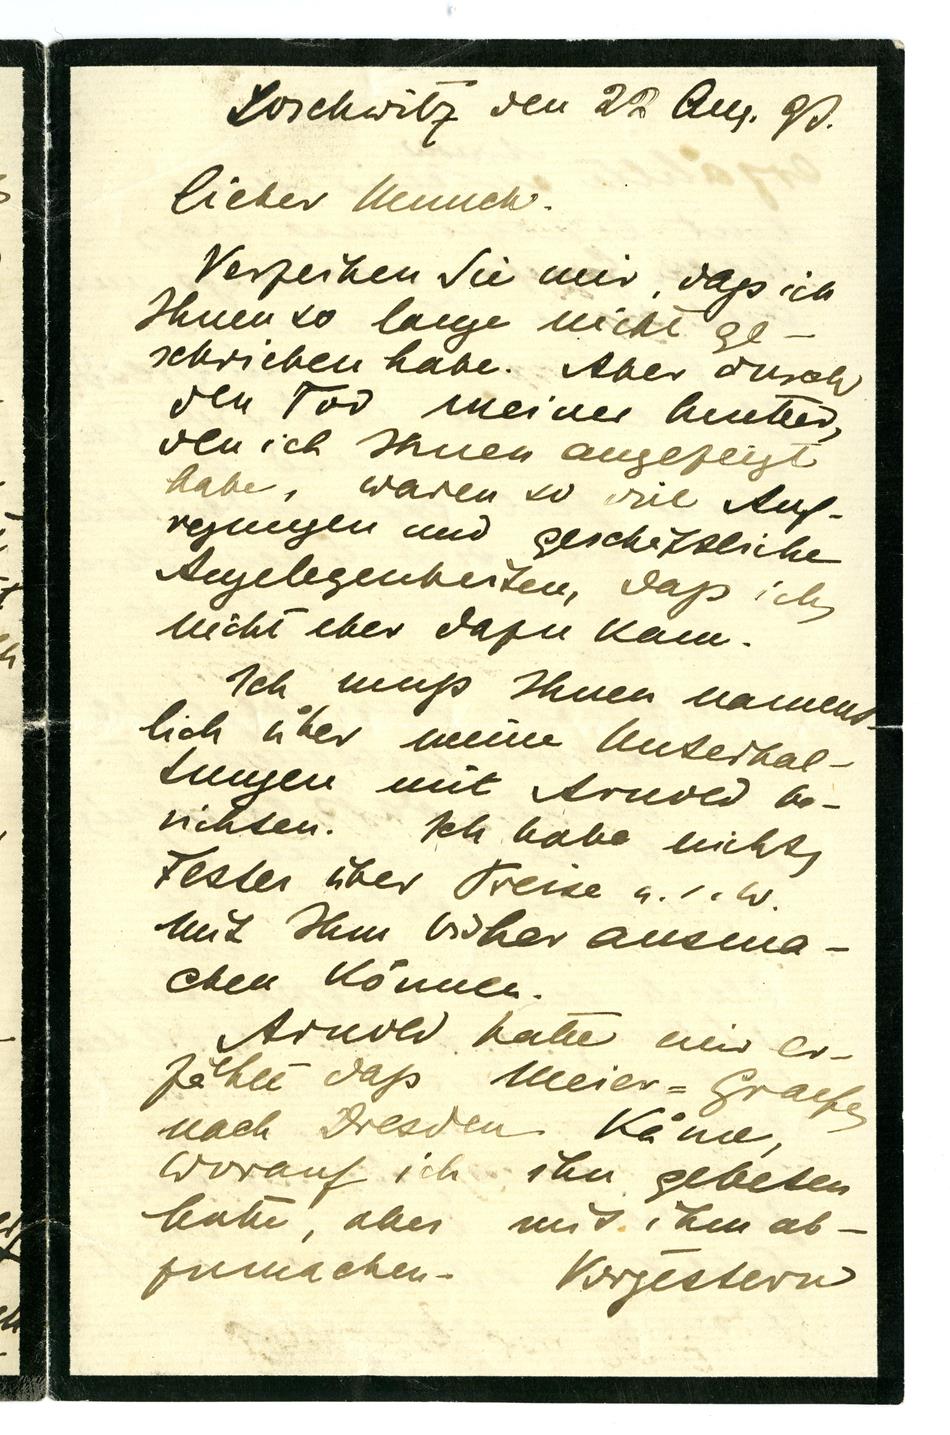 Loschwitz den 22 Aug. 93.
Lieber Munch.
Verzeihen Sie mir, daß ich
Ihnen so lange nicht ge-
schrieben habe. Aber durch
den Tod meiner Mutter,
den ich Ihnen angezeigt
habe, waren so viel Auf-
regungen und geschäftliche
Angelegenheiten, daß ich
nicht eher dazu kam.
Ich muß Ihnen nament-
lich über meine Unterhal-
tungen mit Arnold be-
richten. Ich habe nichts
Festes über Preise u.s.w.
mit Ihm bisher ausma-
chen können.
Arnold hatte mir er-
zählt daß Meier=Graefe
nach Dresden käme,
worauf ich ihn gebeten
hatte, aber mit ihm ab-
zumachen. Vorgestern